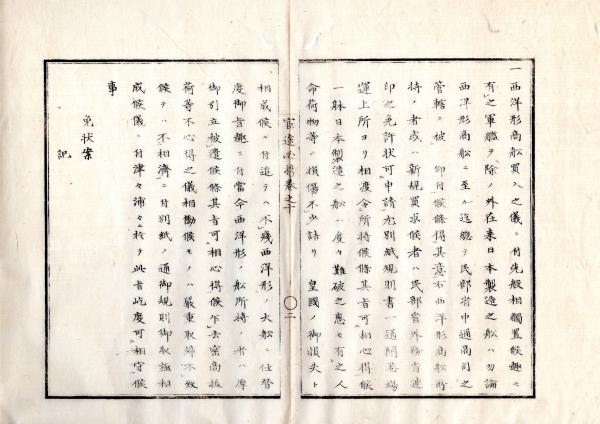 一西洋形商船買入之儀ニ付先般相觸置候趣モ
有之軍艦ヲ除ノ外在来日本製造之船ハ勿論
西洋形商船ニ至ル迄總テ民部省中通商司之
管轄ニ被　仰付候條得其意右西洋形商船所
持ノ者或ハ新規買求候者ハ民部省外務省連
印之免許状可申請尤別紙規則書一通開港場
運上所ヨリ相渡令所持候條其旨可相心得候
一躰日本製造之船ハ度々難破之患モ有之人
命荷物等ノ損傷不少詰リ　皇國ノ御損失ト
官途必携巻之十
〇二
相成候ニ付追テハ不殘西洋形ノ大船ニ仕替
度御旨趣ニ付當今西洋形ノ船所持ノ者ハ厚
御引立被遣候條其旨可相心得候乍去密商拔
荷等不心得之儀相働候モノハ嚴重取締不致
候テハ不相濟ニ付別紙ノ通御規則御取極相
成候儀ニ付津々浦々ニ於テ此旨屹度可相守候
事
免状案
記